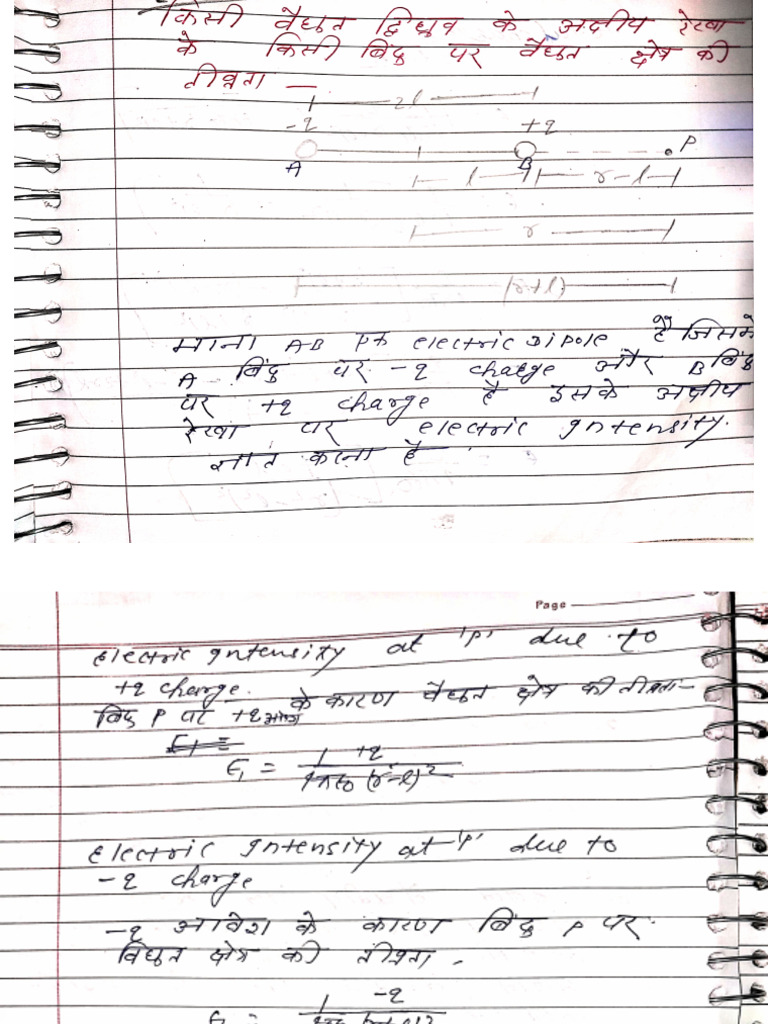 किसी वैद्युत द्विध्रुव के अक्षीय रेखा
के किसी बिंदु पर वैद्युत क्षेत्र की
तीव्रता —
2l
-q +q
A B P
l r-l
r
(r+l)
माना AB एक electric dipole है जिसमें
A बिंदु पर -q charge और B बिंदु
पर +q charge है इसके अक्षीय
रेखा पर electric Intensity.
ज्ञात करना है
Page
Electric Intensity at 'P' due to
+q charge.
बिंदु P पर +q आवेश के कारण वैद्युत क्षेत्र की तीव्रता-
E₁ =
E₁ = 1 +q / 4πε₀ (r-l)²
Electric Intensity at 'P' due to
-q charge
-q आवेश के कारण बिंदु P पर
विद्युत क्षेत्र की तीव्रता.
1 -q